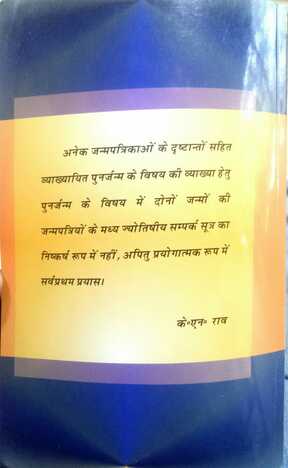 अनेक जन्मपत्रिकाओं के दृष्टान्तों सहित
व्याख्यायित पुनर्जन्म के विषय की व्याख्या हेतु
पुनर्जन्म के विषय में दोनों जन्मों की
जन्मपत्रियों के मध्य ज्योतिषीय सम्पर्क सूत्र का
निष्कर्ष रूप में नहीं, अपितु प्रयोगात्मक रूप में
सर्वप्रथम प्रयास।
के॰एन॰ राव